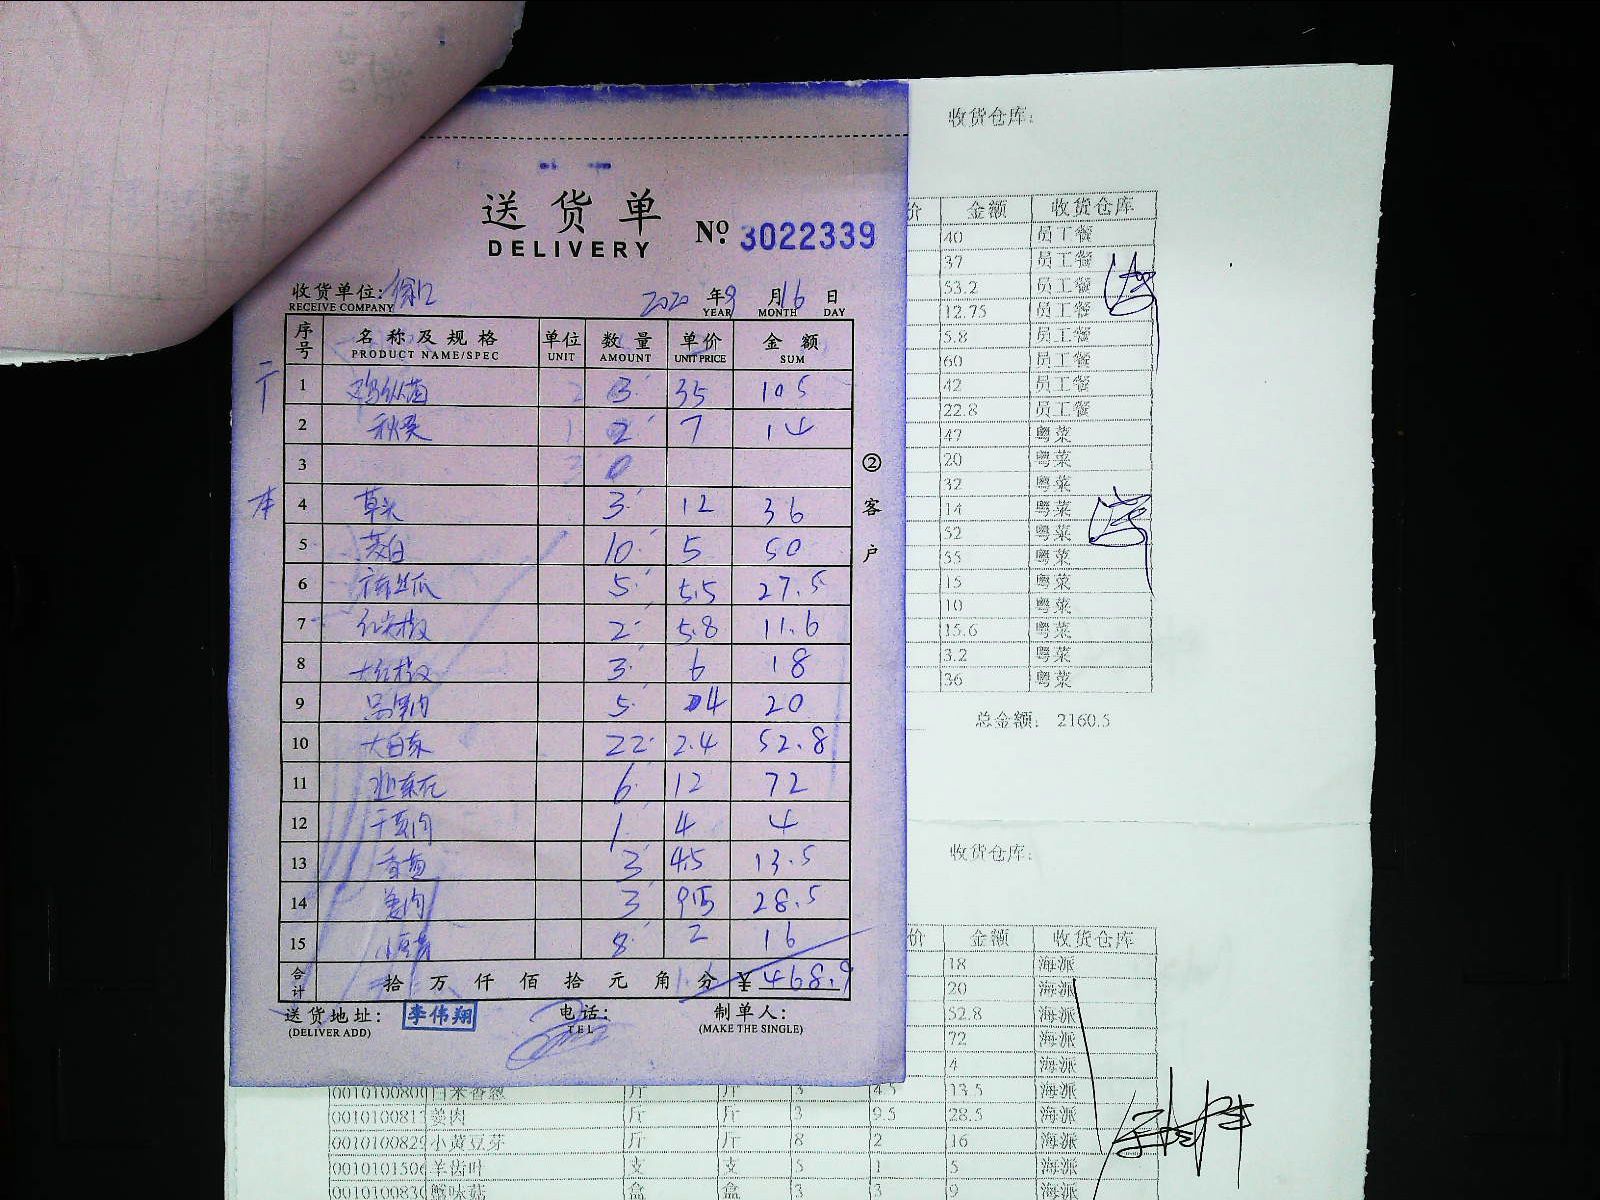 送货单
DELIVERY
№ 3022339
收货单位:
RECEIVE COMPANY
2020 年 9 月 16 日
YEAR MONTH DAY
序号 名称及规格 单位 数量 单价 金额
PRODUCT NAME/SPEC UNIT AMOUNT UNIT PRICE SUM
1 鸡纵菌 3 35 105
2 秋葵 2 7 14
3 0
4 草头 3 12 36
5 茭白 10 5 50
6 5 5.5 27.5
7 红尖椒 2 5.8 11.6
8 大红椒 3 6 18
9 5 4 20
10 大白菜 22 2.4 52.8
11 6 12 72
12 1 4 4
13 香葱 3 4.5 13.5
14 姜肉 3 9.5 28.5
15 8 2 16
合计 拾 万 仟 佰 拾 元 角 分 ¥ 468.9
送货地址: 李伟翔 电话: 制单人:
(DELIVER ADD) TEL (MAKE THE SINGLE)
② 客户
收货仓库:
价 金额 收货仓库
40 员工餐
37 员工餐
53.2 员工餐
12.75 员工餐
5.8 员工餐
60 员工餐
42 员工餐
22.8 员工餐
47 粤菜
20 粤菜
32 粤菜
14 粤菜
52 粤菜
55 粤菜
15 粤菜
10 粤菜
15.6 粤菜
3.2 粤菜
36 粤菜
总金额: 2160.5
收货仓库:
价 金额 收货仓库
18 海派
20 海派
52.8 海派
72 海派
4 海派
斤 斤 3 4.5 13.5 海派
姜肉 斤 斤 3 9.5 28.5 海派
小黄豆芽 斤 斤 8 2 16 海派
羊齿叶 支 支 5 1 5 海派
蟹味菇 盒 盒 3 3 9 海派